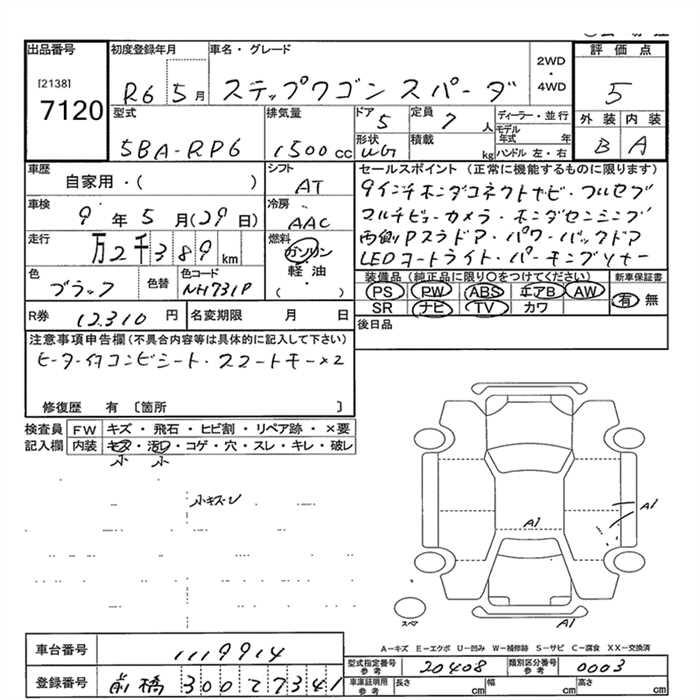 出品番号 初度登録年月 車名・グレード 2WD・4WD 評価点
[2138]
7120 R6 5月 ステップワゴン スパーダ 5
型式 排気量 ドア 5 定員 7人 ディーラー・並行 外装 内装
5BA-RP6 1500cc 形状 WG 積載 kg モデル年式 年 ハンドル 左・右 B A
車歴 自家用・( ) シフト AT セールスポイント (正常に機能するものに限ります)
車検 9年5月(29日) 冷房 AAC 9インチホンダコネクトナビ・フルセグ
マルチビューカメラ・ホンダセンシング
走行 万2千389km 燃料 ガソリン・軽油・( ) 両側Pスラドア・パワーバックドア
LEDヘッドライト・パーキングソナー
色 ブラック 色替 色コード NH731P 装備品 (純正品に限り○をつけてください) 新車保証書
PS PW ABS エアB AW 有 無
SR ナビ TV カワ
R券 12,310円 名変期限 月 日 後日品
注意事項申告欄 (不具合内容等は具体的に記入して下さい)
ヒーター付コンビシート・スマートキー×2
修復歴 有 [箇所 ]
検査員 FW キズ・飛石・ヒビ割・リペア跡・×要
記入欄 内装 キズ・汚レ・コゲ・穴・スレ・キレ・破レ
小 小
小キズU
A1
A1
スペア A1
A−キズ E−エクボ U−凹み W−補修跡 S−サビ C−腐食 XX−交換済
車台番号 1119914 型式指定番号 参考 20408 類別区分番号 参考 0003
登録番号 前橋 300 て7341 車庫証明用 参考 長さ cm 幅 cm 高さ cm